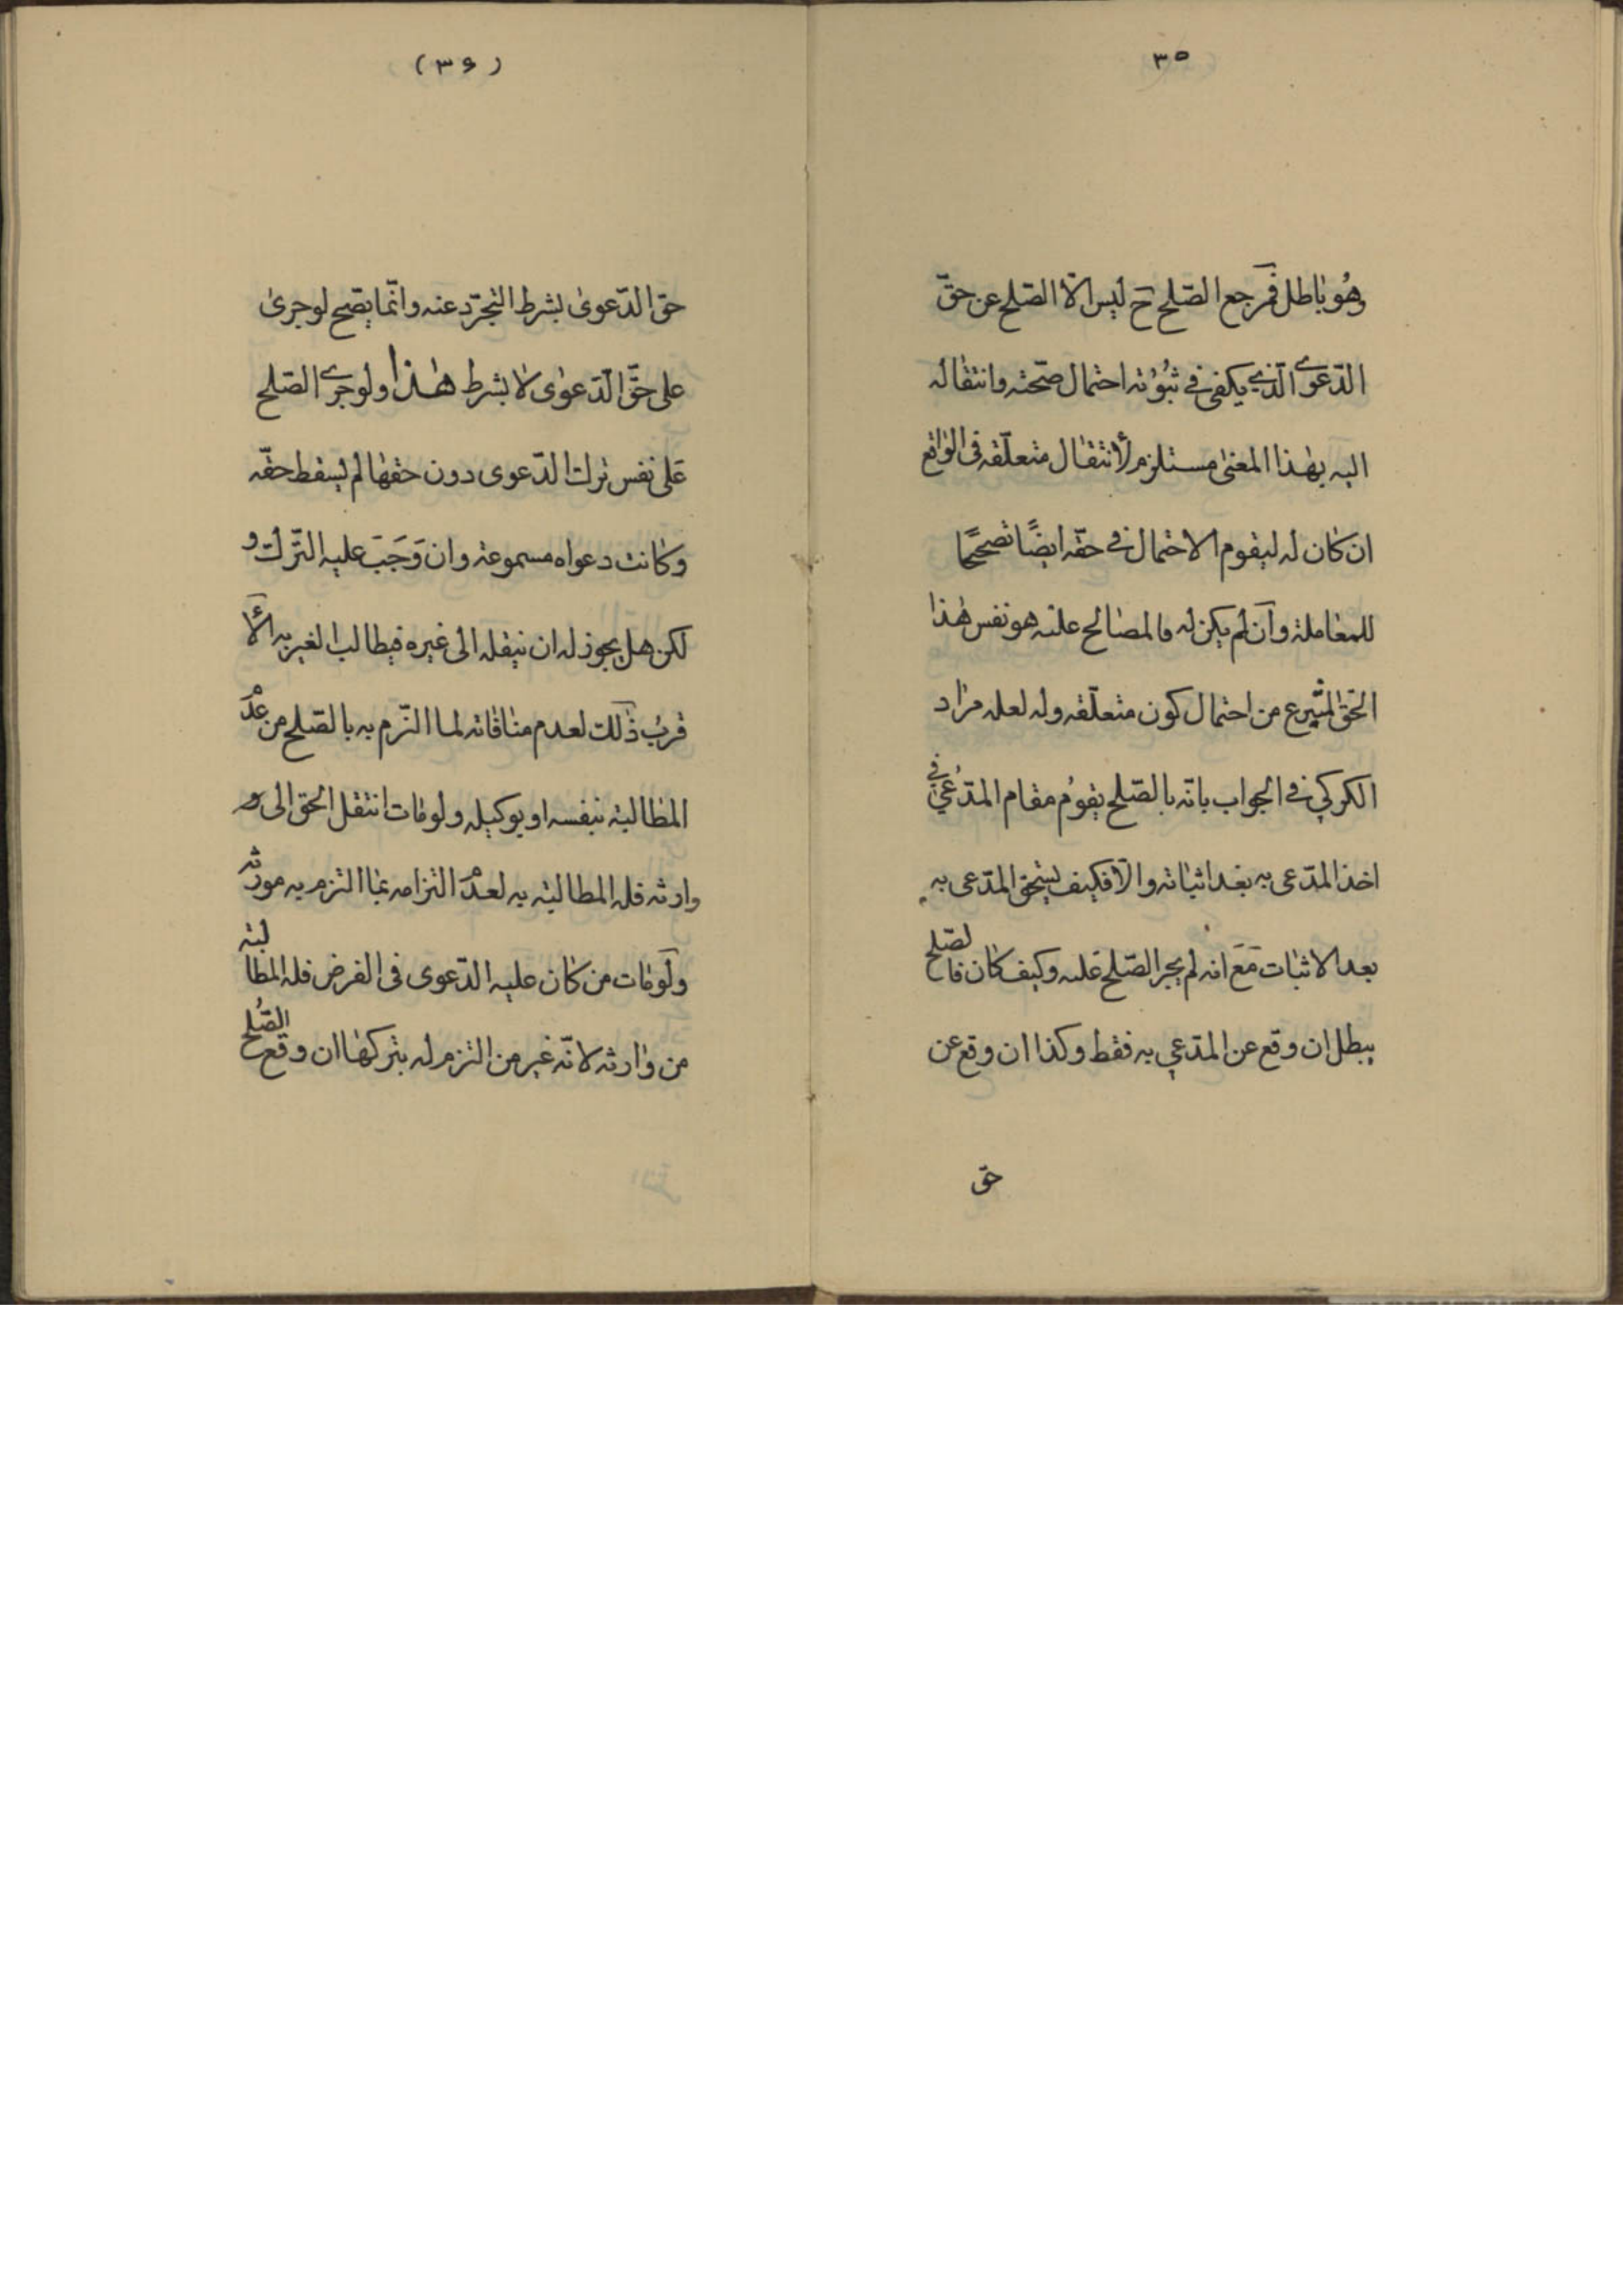 ٣٥
وهُو باطل فمرجع الصّلح ح ليس الّا الصّلح عن حقّ
الدّعوى الّذي يكفى في ثبُوُته احتمال صحّته وانتقاله
اليه بهٰذا المعنى مستلزم لأنتقال متعلّقه فى الواقع
ان كان له ليقوم الاحتمال في حقّه ايضًا تصحيحًا
للمعٰاملة وان لم يكن له فالمصٰالح عليه هو نفس هٰذا
الحقّ المتبرع من احتمال كون متعلّقه وله لعله مرٰاد
الكركي في الجواب بانّه بالصّلح يقوُم مقام المدّعُي في
اخذ المدّعى به بعد اثبٰاته والّا فكيف يستحق المدّعى به
بعد الاثبٰات مَعَ انه لم يجر الصّلح عليه وكيف كٰان فالصّلح
يبطل ان وقع عن المدّعي به فقط وكذا ان وقع عن
حقّ
(٣۶)
حقّ الدّعوىٰ بشرط التجرّد عنه وانّما يصّح لو جرىٰ
على حقّ الدّعوٰى لا بشرط هٰذا ولو جرى الصّلح
عَلى نفس ترك الدّعوى دون حقهٰا لم يسقط حقّه
وكانت دعواه مسموعة وان وَجَبَ عليه التّرك و
لكن هل يجوز له ان ينقله الى غيره فيطالب الغير به الأ
قربُ ذٰلك لعدم منٰافٰاته لما التزم به بالصّلح من عدْمَ
المطٰالبة بنفسه او بوكيله ولو مٰات انتقل الحق الى و
وارثه فله المطالبة به لعدْمَ التزامه بمٰا التزم به مورّثه
ولو مٰات من كٰان عليه الدّعوى فى الفرض فله المطالبة
من وٰارثه لانّه غير من التزم له بتركهٰا ان وقع الصُّلح